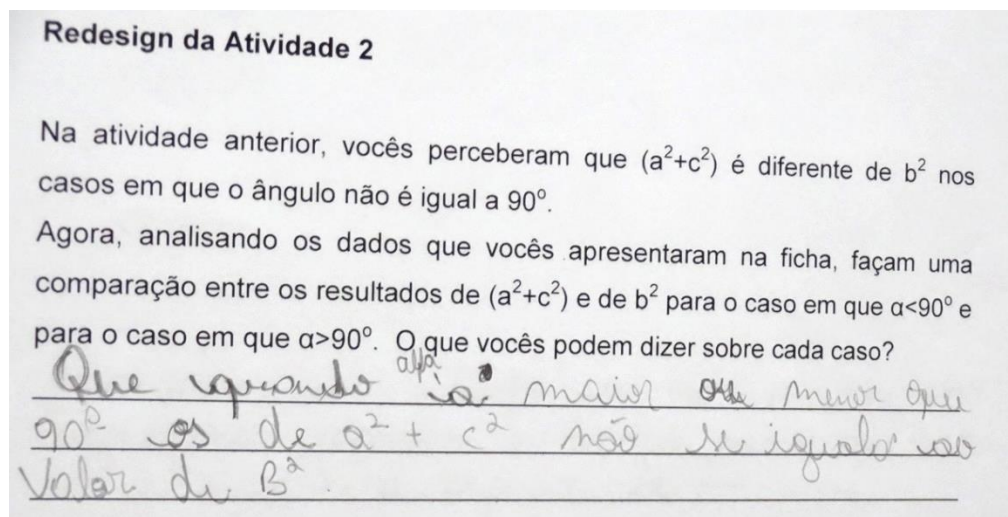 Redesign da Atividade 2
Na atividade anterior, vocês perceberam que (a²+c²) é diferente de b² nos
casos em que o ângulo não é igual a 90º.
Agora, analisando os dados que vocês apresentaram na ficha, façam uma
comparação entre os resultados de (a²+c²) e de b² para o caso em que α<90º e
para o caso em que α>90º. O que vocês podem dizer sobre cada caso?
alfa
Que quando é maior ou menor que
90º os de a² + c² não se iguala ao
Valor de B².